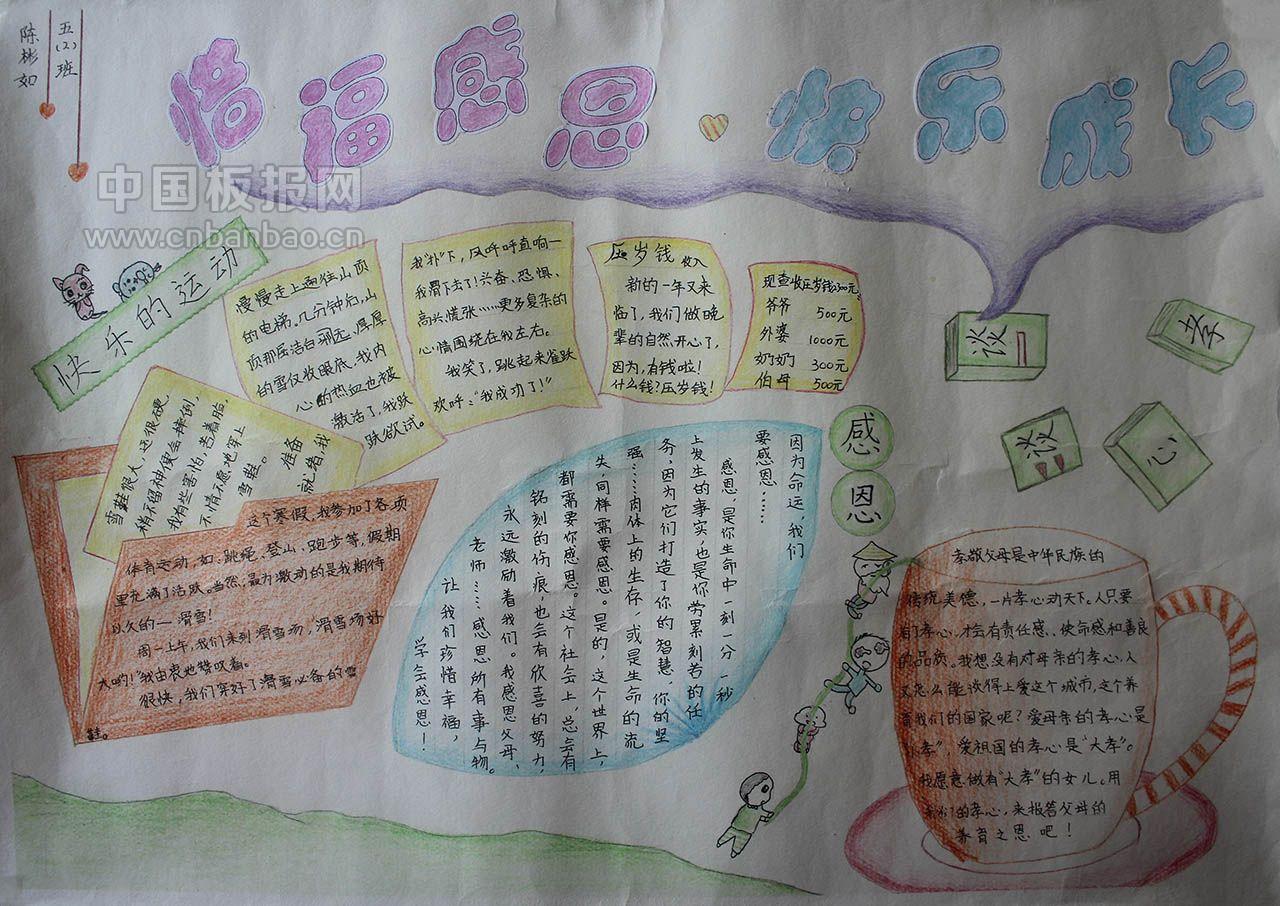 五(2)班
陈彬如
惜福感恩
快乐成长
中国板报网
www.cnbanbao.cn
快乐的运动
这个寒假,我参加了各项
体育运动,如:跳绳、登山、跑步等,假期
里充满了活跃。当然,最力激动的是我期待
以久的——滑雪!
周一上午,我们来到滑雪场,“滑雪场好
大哟!”我由衷地赞叹着。
很快,我们穿好了滑雪必备的雪
鞋。
雪鞋很大,还很硬,
稍不留神便会摔倒,
我有些害怕,苦着脸,
不情不愿地穿上
雪鞋。
准备
就绪我
慢慢走上通往山顶
的电梯。几分钟后,山
顶那座洁白
的雪仅收眼底,我内
心的热血也被
激活了,我跃
跃欲试。
我“扑”下,风呼呼直响一
我滑下去了!兴奋、恐惧、
高兴,慌张……更多复杂的
心情围绕在我左右。
我笑了,跳起来雀跃
欢呼:“我成功了!”
压岁钱收入
新的一年又来
临了,我们做晚
辈的自然开心了,
因为,有钱啦!
什么钱?压岁钱!
现查收压岁钱2300元。
爷爷 500元
外婆 1000元
奶奶 300元
伯母 500元
谈一
谈
孝
心
感恩
因为命运,我们
要感恩……
感恩,是你生命中一刻一分一秒
上发生的事实,也是你劳累刻苦的任
务,因为它们打造了你的智慧,你的坚
强……肉体上的生存,或是生命的流
失同样需要感恩。是的,这个世界上,
都需要你感恩。这个社会上,总会有
铭刻的伤痕,也会有欣喜的努力,
永远激励着我们。我感恩父母、
老师……感恩所有事与物。
让我们珍惜幸福,
学会感恩!
孝敬父母是中华民族的
传统美德,一片孝心动天下。人只要
有了孝心,才会有责任感、使命感和善良
的品质。我想没有对母亲的孝心,人
又怎么能谈得上爱这个城市,这个养
育我们的国家呢?爱母亲的孝心是
“小孝”,爱祖国的孝心是“大孝”。
我愿意做有“大孝”的女儿。用
我们的孝心,来报答父母的
养育之恩吧!